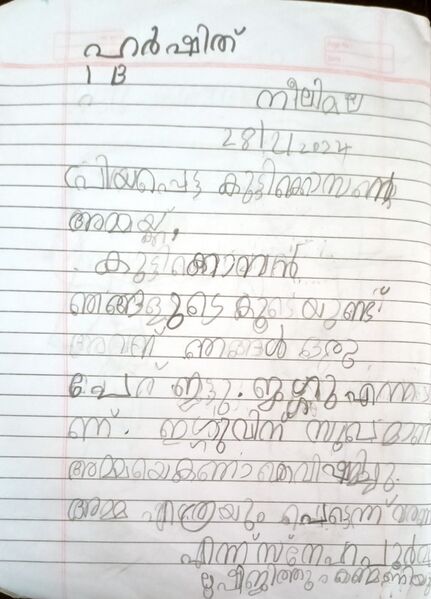 ഹർഷിത്
1 B
നീലിമല
28/2/2024
പ്രിയപ്പെട്ട കുട്ടിക്കൊമ്പന്റെ
അമ്മയ്ക്ക്,
കുട്ടിക്കൊമ്പൻ
ഞങ്ങളുടെ കൂടെയുണ്ട്
അവന് ഞങ്ങൾ ഒരു
പേര് ഇട്ടു. ജഗ്ഗു എന്നാ
ണ്. ജഗ്ഗുവിന് സുഖമാണ്
അമ്മയെകാണാതെവിഷമിച്ചു.
അമ്മ എത്രയും പെട്ടെന്ന്
എന്ന് സ്നേഹപൂർവ